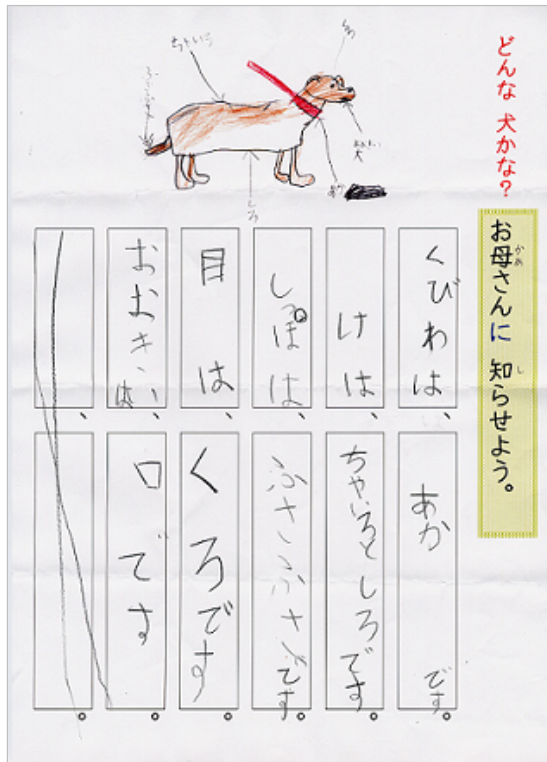 どんな 犬かな？
お母さんに 知らせよう。
かあ
し
くびわは、 あかです。
けは、 ちゃいろとしろです。
しっぽは、 ふさふさです。
目は、 くろです。
おおきいは、 口です。
ちゃいろ
しろ